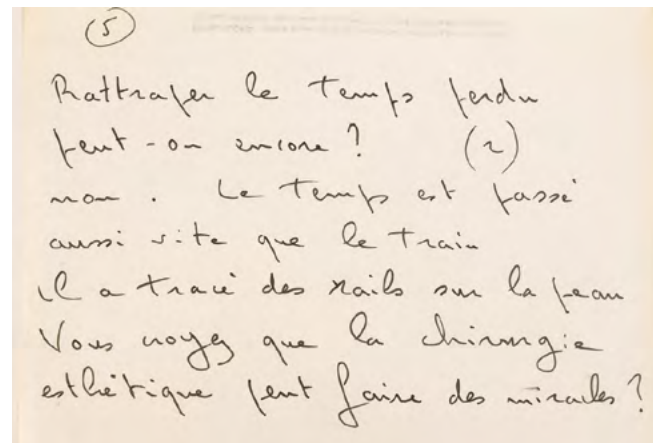 5
Rattraper le temps perdu
peut-on encore ? (2)
non . Le temps est passé
aussi vite que le train
il a tracé des rails sur la peau
Vous croyez que la chirurgie
esthétique peut faire des miracles ?